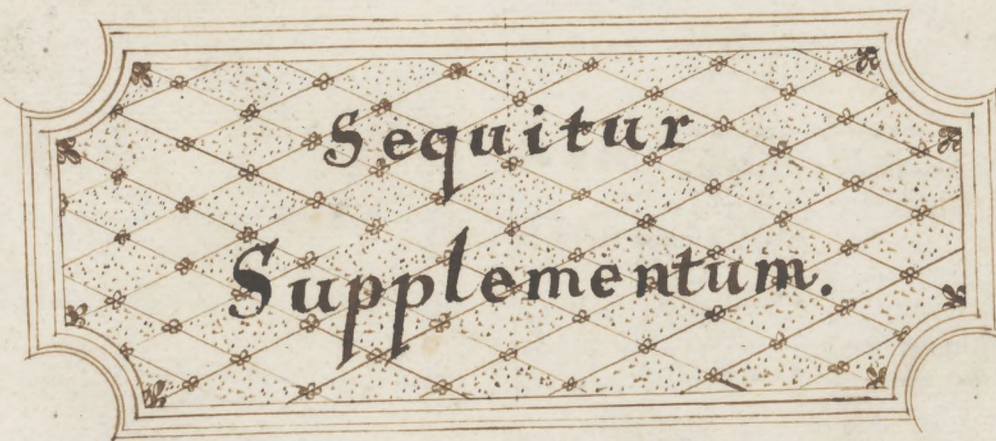 Sequitur
Supplementum.